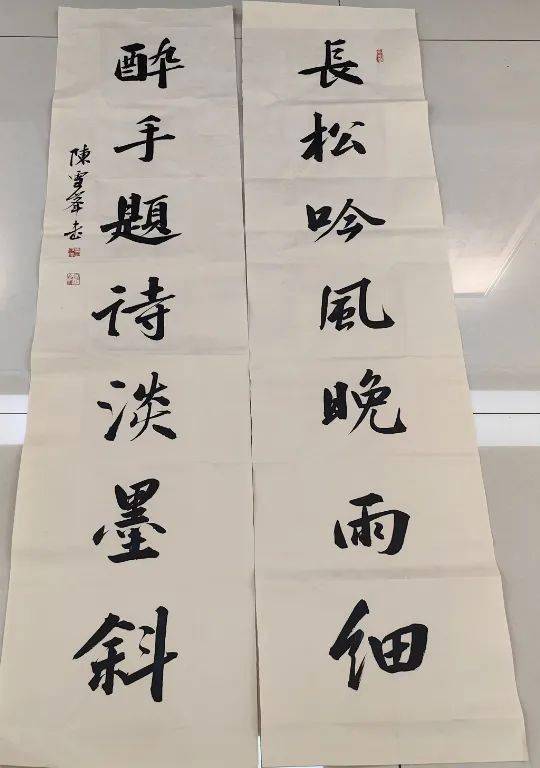 長松吟風晚雨細
醉手題詩淡墨斜
陳雪峰書